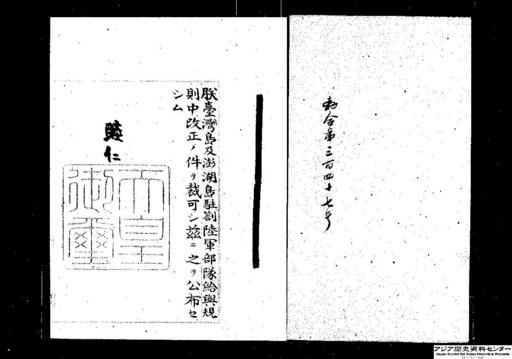 勅令第三百四十七号
朕臺灣島及澎湖島駐劄陸軍部隊給與規
則中改正ノ件ヲ裁可シ茲ニ之ヲ公布セ
シム
睦仁
天皇
御璽
アジア歴史資料センター
Japan Center for Asian Historical Records